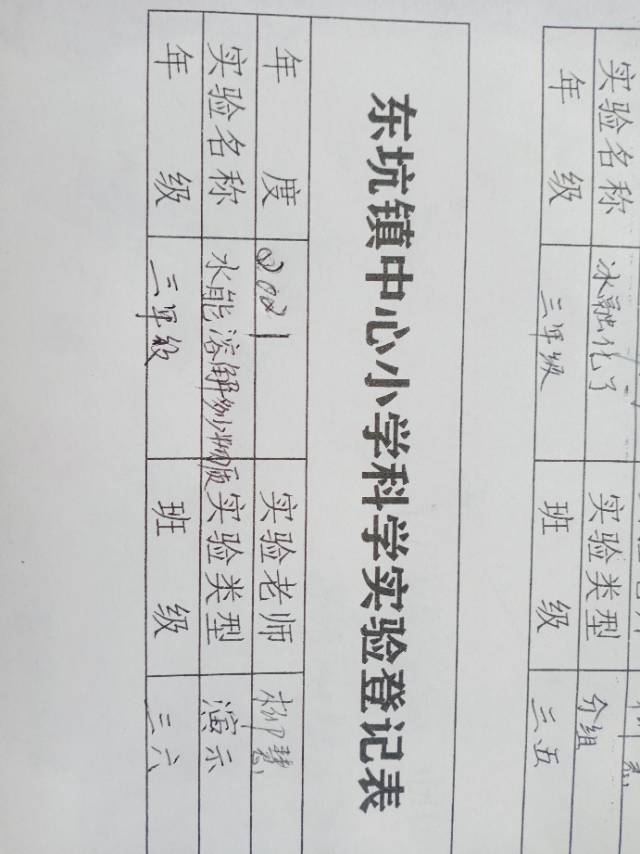 实验名称 冰融化了 实验类型 分组
年 级 三年级 班 级 三五
东坑镇中心小学科学实验登记表
年 度 2021 实验老师 柳慧
实验名称 水能溶解多少物质 实验类型 演示
年 级 三年级 班 级 三六